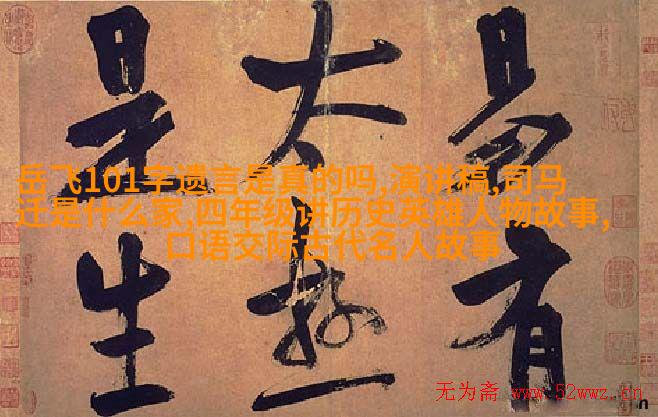 易有
太極
是生
岳飞101字遗言是真的吗,演讲稿,司马
迁是什么家,四年级讲历史英雄人物故事,
口语交际古代名人故事
无为斋 www.52wwz.cn